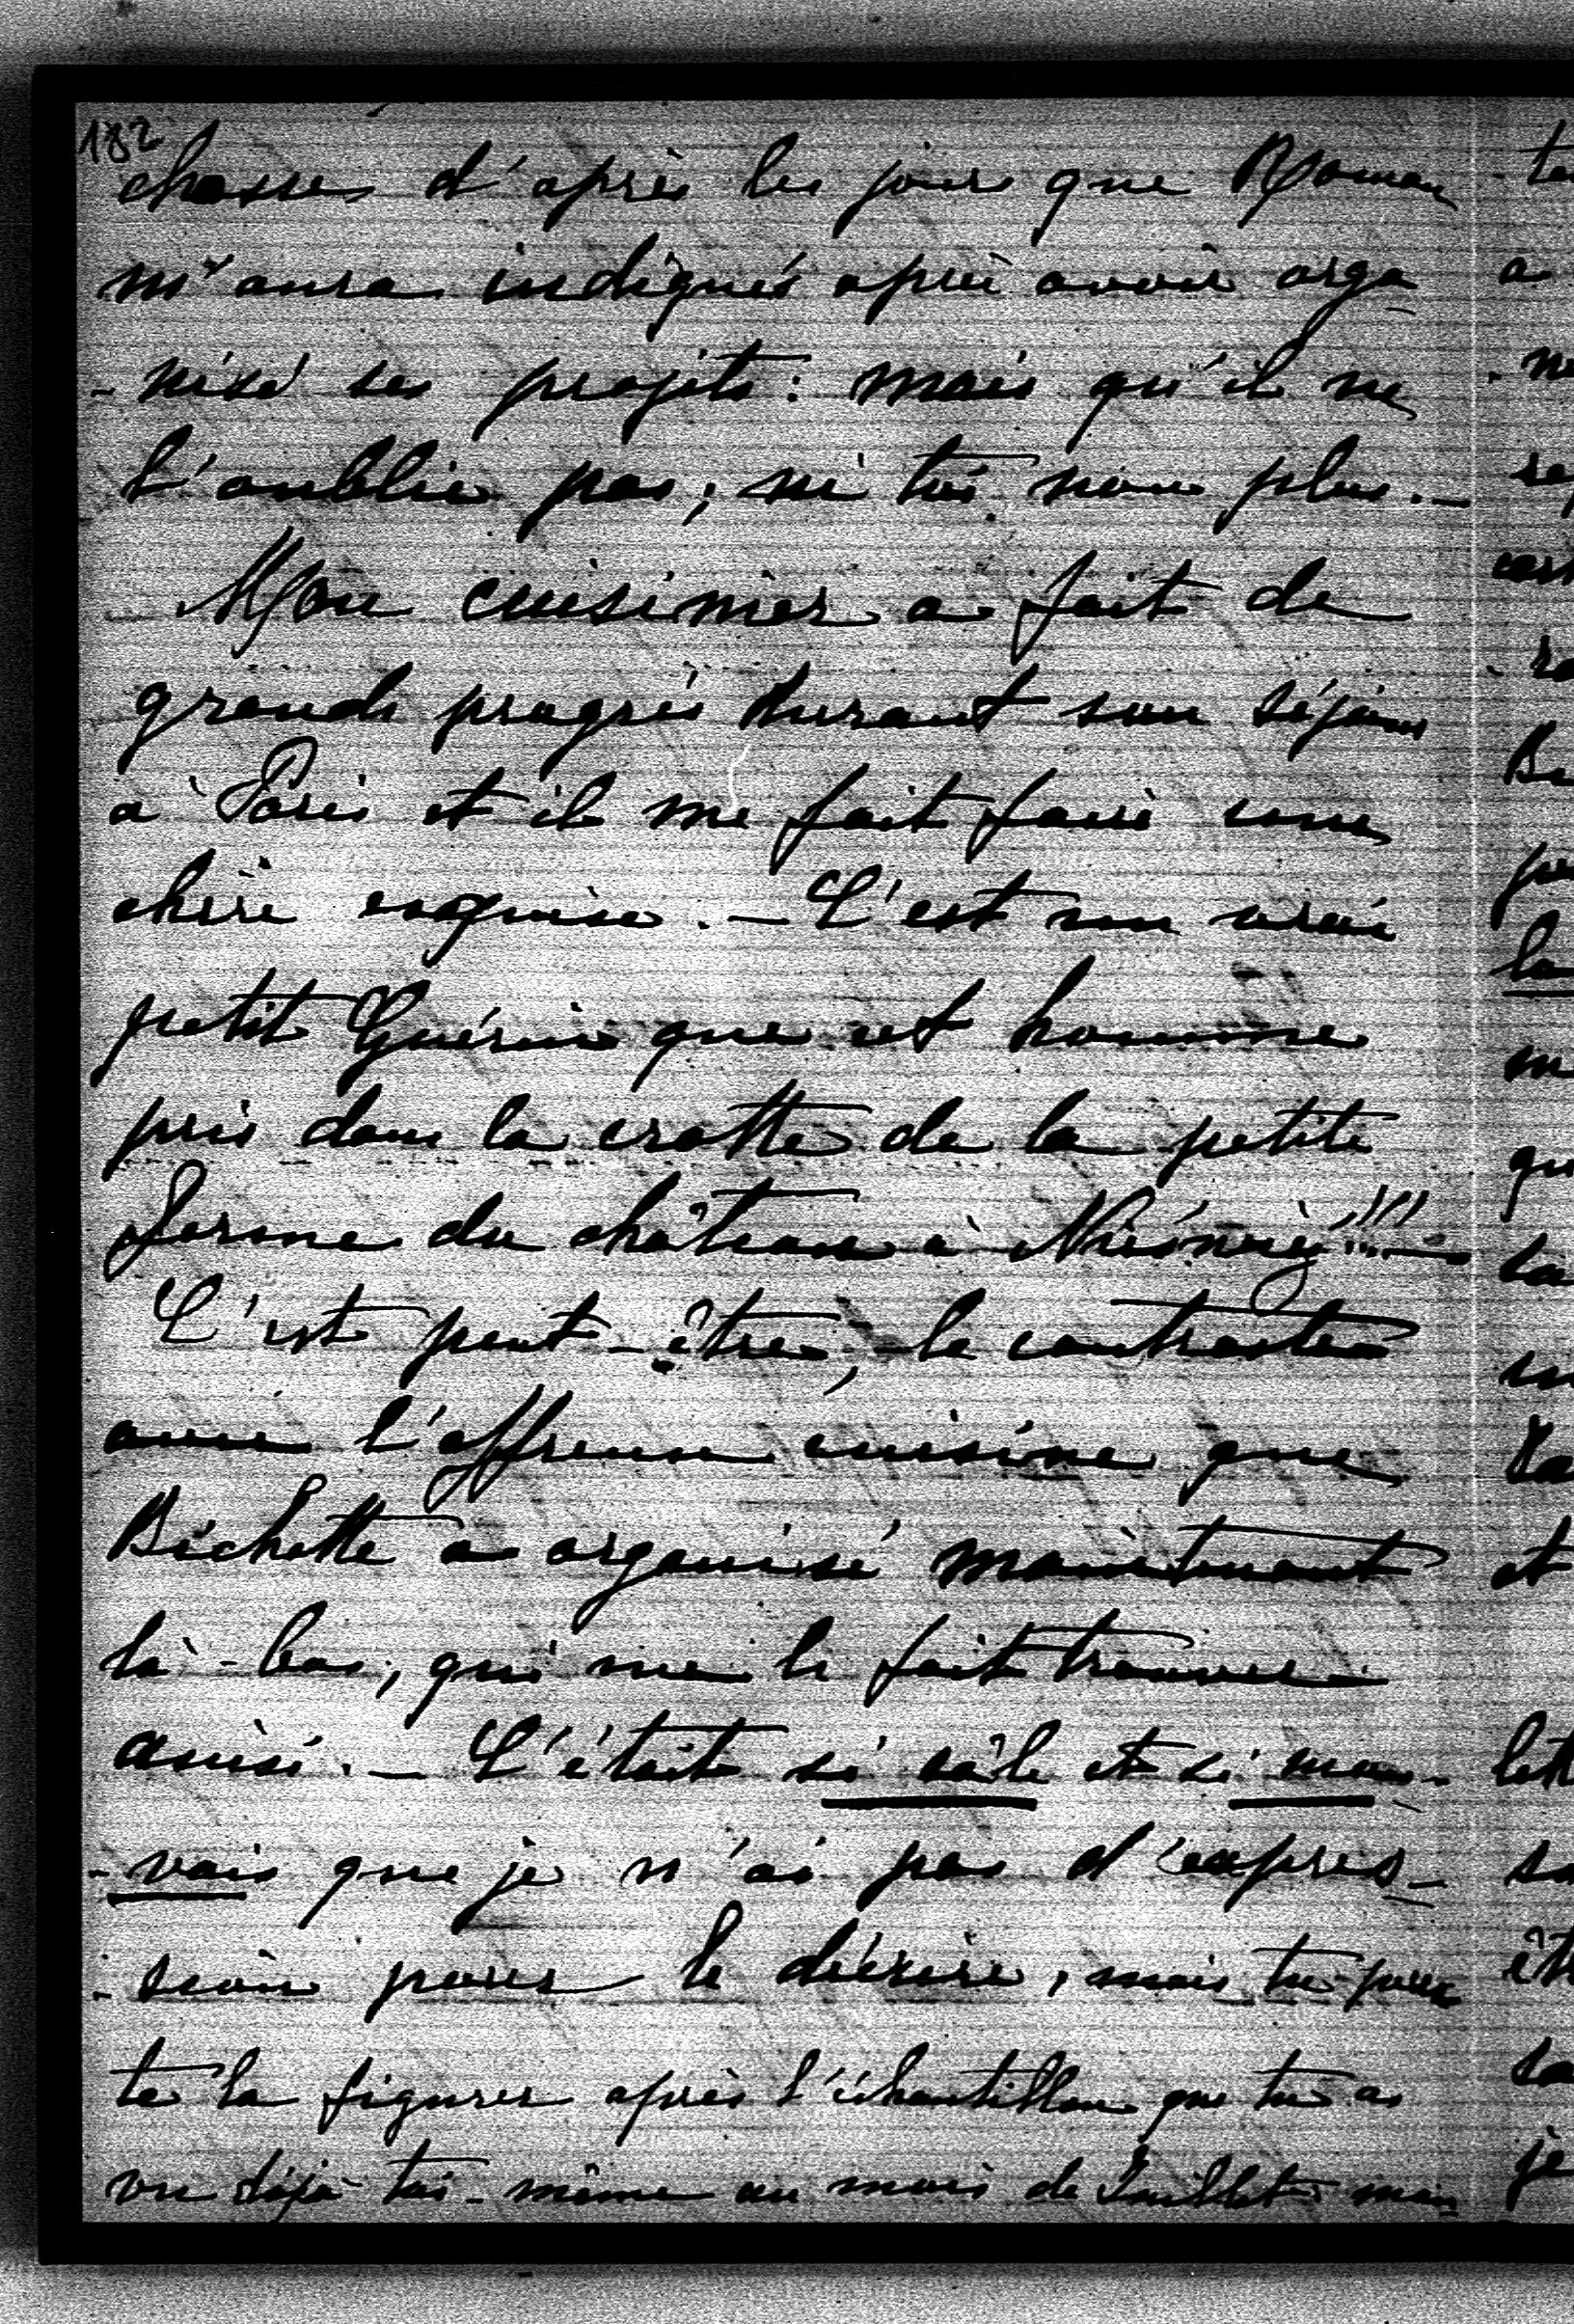 182
chasses d'après les jours que Roman
m'aura indiqués après avoir orga
-nisé ses projets: mais qu'il ne
l'oublie pas, ni toi non plus. —
Mon cuisinier a fait de
grands progrès durant son séjour
à Paris et il me fait faire une
chère exquise. — C'est un vrai
petit Guérin que cet homme
pris dans la crotte de la petite
ferme du château à Niéśwież!!! —
C'est peut-être, le contraste
avec l'affreuse cuisine que
Bichette a organisé maintenant
là-bas, qui me le fait trouver
ainsi. — C'était si sâle et si mau-
-vais que je n'ai pas d'expres-
-sion pour le décrire, mais tu peux
te la figurer après l'échantillon que tu as
vu déjà toi-même au mois de Juillet mon